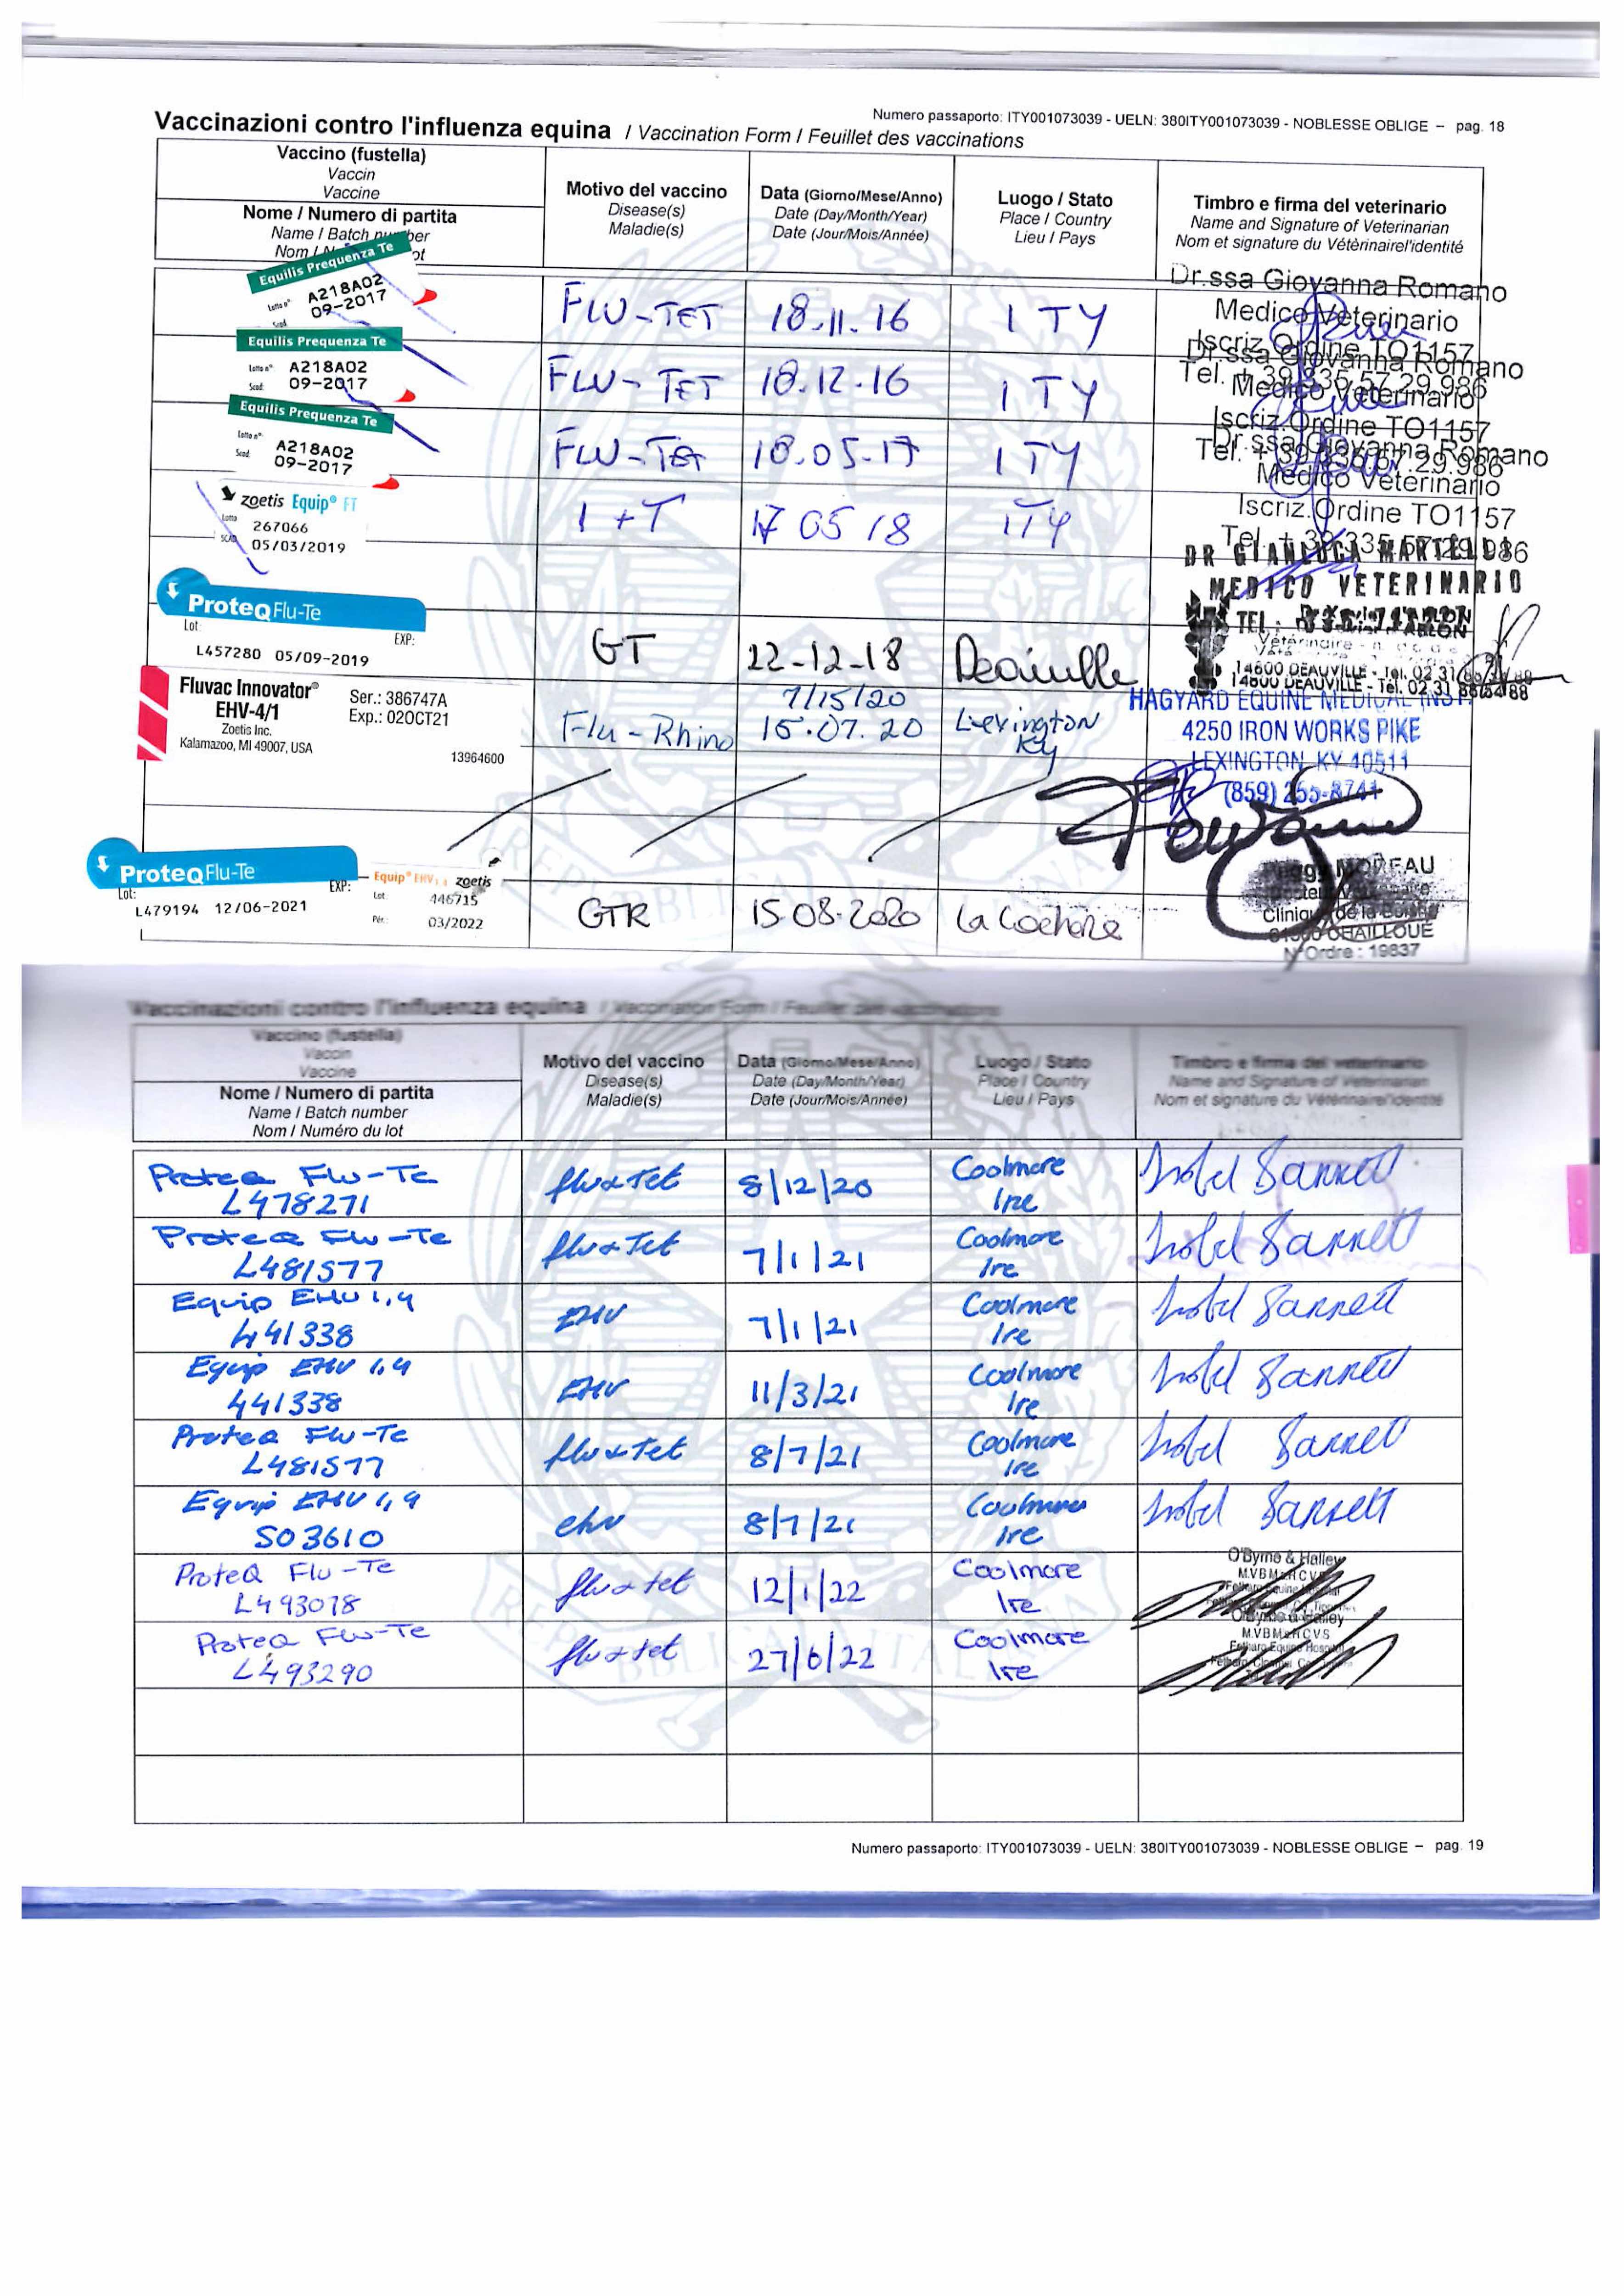 Numero passaporto: ITY001073039 - UELN: 380ITY001073039 - NOBLESSE OBLIGE – pag. 18
Vaccinazioni contro l'influenza equina / Vaccination Form / Feuillet des vaccinations
Vaccino (fustella)
Vaccin
Vaccine
Nome / Numero di partita
Name / Batch number
Nom /
Motivo del vaccino
Disease(s)
Maladie(s)
Data (Giorno/Mese/Anno)
Date (Day/Month/Year)
Date (Jour/Mois/Année)
Luogo / Stato
Place / Country
Lieu / Pays
Timbro e firma del veterinario
Name and Signature of Veterinarian
Nom et signature du Vétèrinairel'identité
Equilis Prequenza Te
Lotto n° A218A02
Scad. 09-2017
FLU-TET 18.11.16 ITY
Dr.ssa Giovanna Romano
Medico Veterinario
Iscriz. Ordine TO1157
Equilis Prequenza Te
Lotto n° A218A02
Scad. 09-2017
FLU-TET 18.12.16 ITY
Dr.ssa Giovanna Romano
Tel. + 39 335 57.29.986
Medico Veterinario
Iscriz.Ordine TO1157
Equilis Prequenza Te
Lotto n° A218A02
Scad. 09-2017
FLU-TET 18.05.17 ITY
Dr.ssa Giovanna Romano
Tel. + 39 335 57.29.986
Medico Veterinario
Iscriz.Ordine TO1157
Tel. + 39 335 57.29.986
zoetis Equip® FT
Lotto 267066
SCAD. 05/03/2019
I+T 17 05 18 ITY
DR GIANLUCA MARTELLI
MEDICO VETERINARIO
TEL.
ProteqFlu-Te
Lot: EXP:
L457280 05/09-2019
GT 22-12-18 Deauville
14800 DEAUVILLE - Tél. 02 31
14800 DEAUVILLE - Tél. 02 31
Fluvac Innovator®
EHV-4/1
Zoetis Inc.
Kalamazoo, MI 49007, USA
Ser.: 386747A
Exp.: 02OCT21
13964600
7/15/20
Flu-Rhino 15.07.20 Lexington
Ky
HAGYARD EQUINE MEDICAL INST.
4250 IRON WORKS PIKE
LEXINGTON, KY 40511
(859) 255-8741
ProteqFlu-Te
Lot: EXP:
L479194 12/06-2021
Equip® EHV 1,4 zoetis
Lot: 446715
Pér.: 03/2022
GTR 15-08-2020 La Cochere
Peggy MOREAU
Clinique de la
61500 CHAILLOUE
N° Ordre : 19837
Vaccinazioni contro l'influenza equina / Vaccination Form / Feuillet des vaccinations
Vaccino (fustella)
Vaccin
Vaccine
Nome / Numero di partita
Name / Batch number
Nom / Numéro du lot
Motivo del vaccino
Disease(s)
Maladie(s)
Data (Giorno/Mese/Anno)
Date (Day/Month/Year)
Date (Jour/Mois/Année)
Luogo / Stato
Place / Country
Lieu / Pays
Timbro e firma del veterinario
Name and Signature of Veterinarian
Nom et signature du Vétèrinairel'identité
Proteq Flu-Te flu & Tet 8/12/20 Coolmore Isobel Barrett
L478271 Ire
Proteq Flu-Te flu & Tet 7/1/21 Coolmore Isobel Barrett
L481577 Ire
Equip EHV 1,4 EHV 7/1/21 Coolmore Isobel Barrett
441338 Ire
Equip EHV 1,4 EHV 11/3/21 Coolmore Isobel Barrett
441338 Ire
Proteq Flu-Te flu & Tet 8/7/21 Coolmore Isobel Barrett
L481577 Ire
Equip EHV 1,4 ehv 8/7/21 Coolmore Isobel Barrett
503610 Ire
ProteQ Flu-Te flu & tet 12/1/22 Coolmore
L493078 Ire
O'Byrne & Halley
ProteQ Flu-Te flu & tet 27/6/22 Coolmore
L493290 Ire
O'Byrne & Halley
M.V.B M.R.C.V.S
Fethard Equine Hospital
Numero passaporto: ITY001073039 - UELN: 380ITY001073039 - NOBLESSE OBLIGE – pag. 19